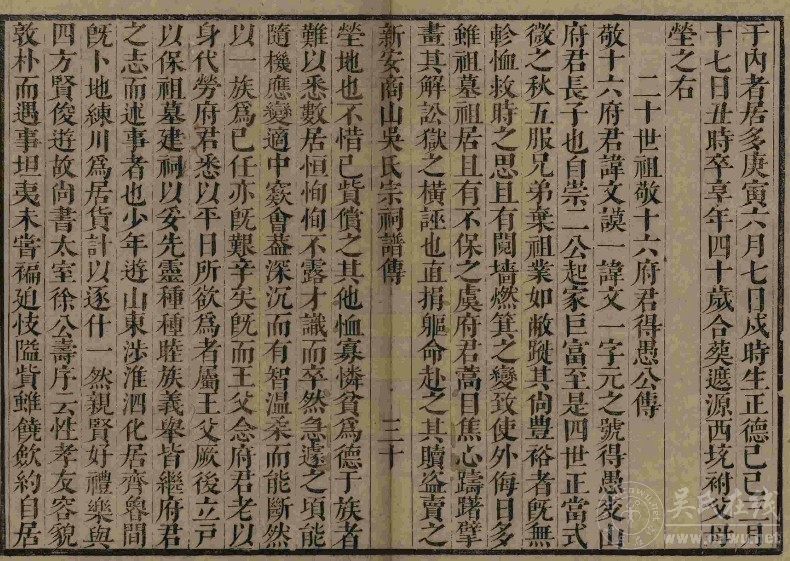 于內者居多庚寅六月七日戌時生正德己巳二月
十七日丑時卒享年四十歲合葬遞源西坑祔父母
塋之右
二十世祖敬十六府君得愚公傳
敬十六府君諱文謨一諱文一字元之號得愚叟山
府君長子也自崇二公起家巨富至是四世正當式
微之秋五服兄弟棄祖業如敝蹝其尚豊裕者旣無
軫恤救時之思且有䦧墻燃箕之變致使外侮日多
雖祖墓祖居且有不保之虞府君蒿目焦心躊躇擘
畫其解訟獄之橫誣也直捐軀命赴之其贖盜賣之
新安商山吳氏宗祠譜傳
三十
塋地也不惜己貲償之其他恤寡憐貧為德于族者
難以悉數居恒恂恂不露才識而卒然急遽之頃能
隨機應變適中窾會葢深沉而有智溫柔而能斷然
以一族爲己任亦旣艱辛矣旣而王父念府君老以
身代勞府君悉以平日所欲爲者屬王父厥後立戶
以保祖墓建祠以妥先靈種種睦族義舉皆繼府君
之志而述事者也少年遊山東涉淮泗化居齊魯間
旣卜地練川爲居貨計以逐什一然親賢好禮樂與
四方賢俊遊故尚書太室徐公壽序云性孝友容貌
敦朴而遇事坦夷未甞褊廹忮隘貲雖饒歛約自居
吳氏在线
www.cnwu.net